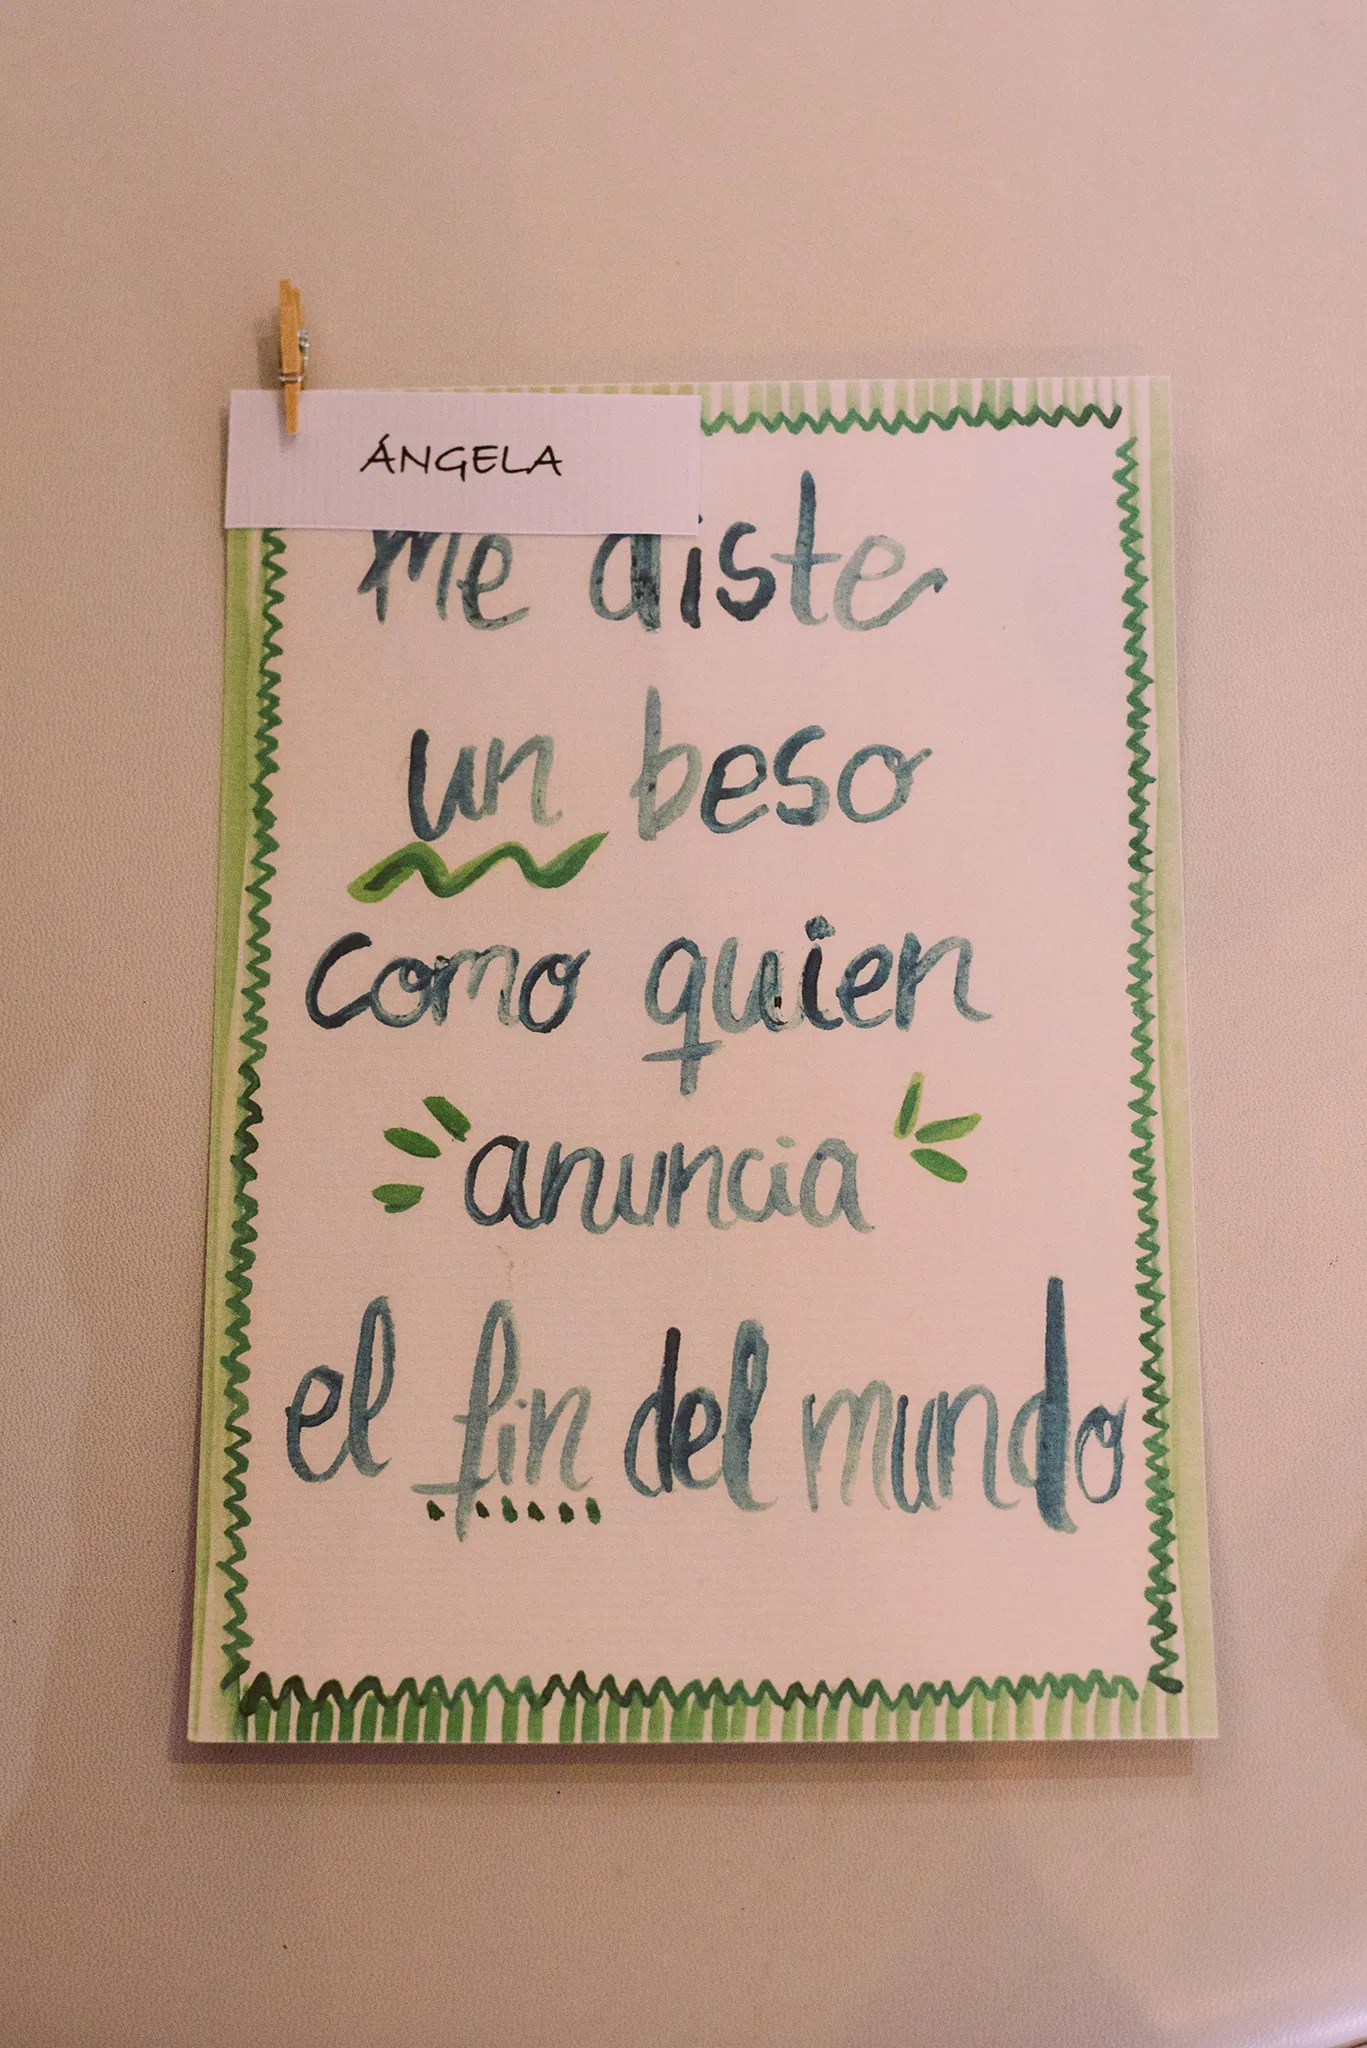 ÁNGELA
Me diste
un beso
como quien
anuncia
el fin del mundo